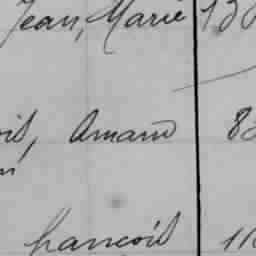 Jean, Marie 13
ois, Amand 8
n
francois 11